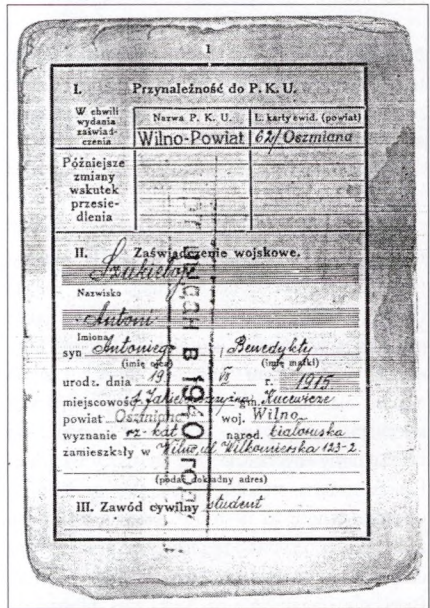 1
I. Przynależność do P. K. U.
W chwili wydania zaświadczenia
Nazwa P. K. U.
L. karty ewid. (powiat)
Wilno-Powiat
62/Oszmiana
Późniejsze
zmiany
wskutek
przesie-
dlenia
II. Zaświadczenie wojskowe.
Nazwisko
Antoni
Imiona
syn Antoniego i Benedykty
(imię ojca) (imię matki)
urodz. dnia 19 VI r. 1915
miejscowość gm.
powiat Oszmiana woj. Wilno
wyznanie rz-kat narod. białoruska
zamieszkały w Wilno, ul Wilkomierska 123-2
(podać dokładny adres)
III. Zawód cywilny student
в 1940